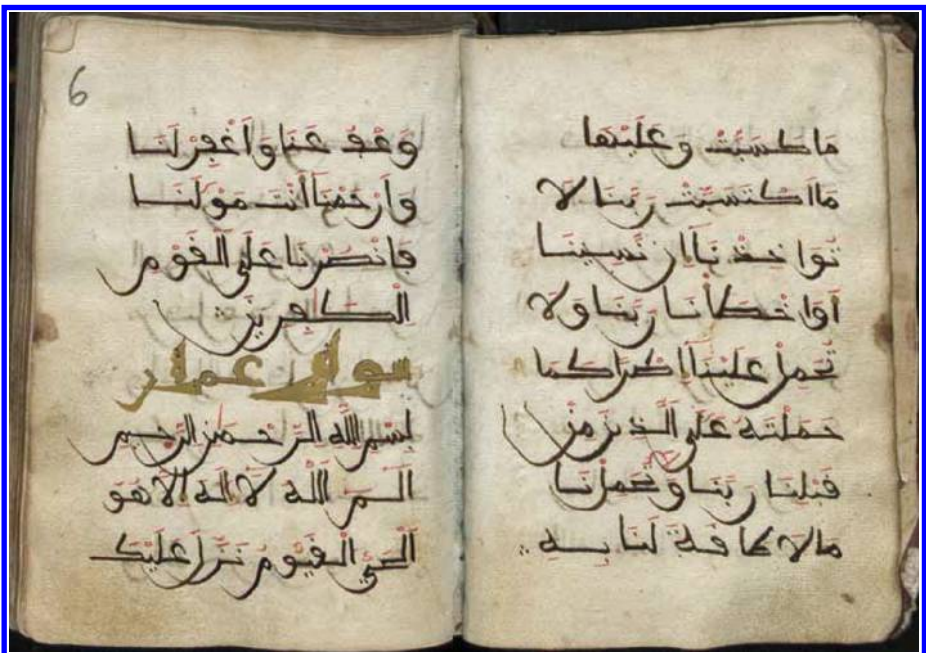 ما كسبت وعليها
ما اكتسبت ربنا لا
تواخذنا إن نسينا
أو اخطأنا ربنا ولا
تحمل علينا إصرا كما
حملته على الذين من
قبلنا ربنا وتحملنا
ما لا طاقة لنا به
6
وعف عنا واغفر لنا
وارحمنا أنت مولنا
فانصرنا على القوم
الكافرين
عمران
بسم الله الرحمن الرحيم
الم الله لا إله إلا هو
الحي القيوم نزل عليك